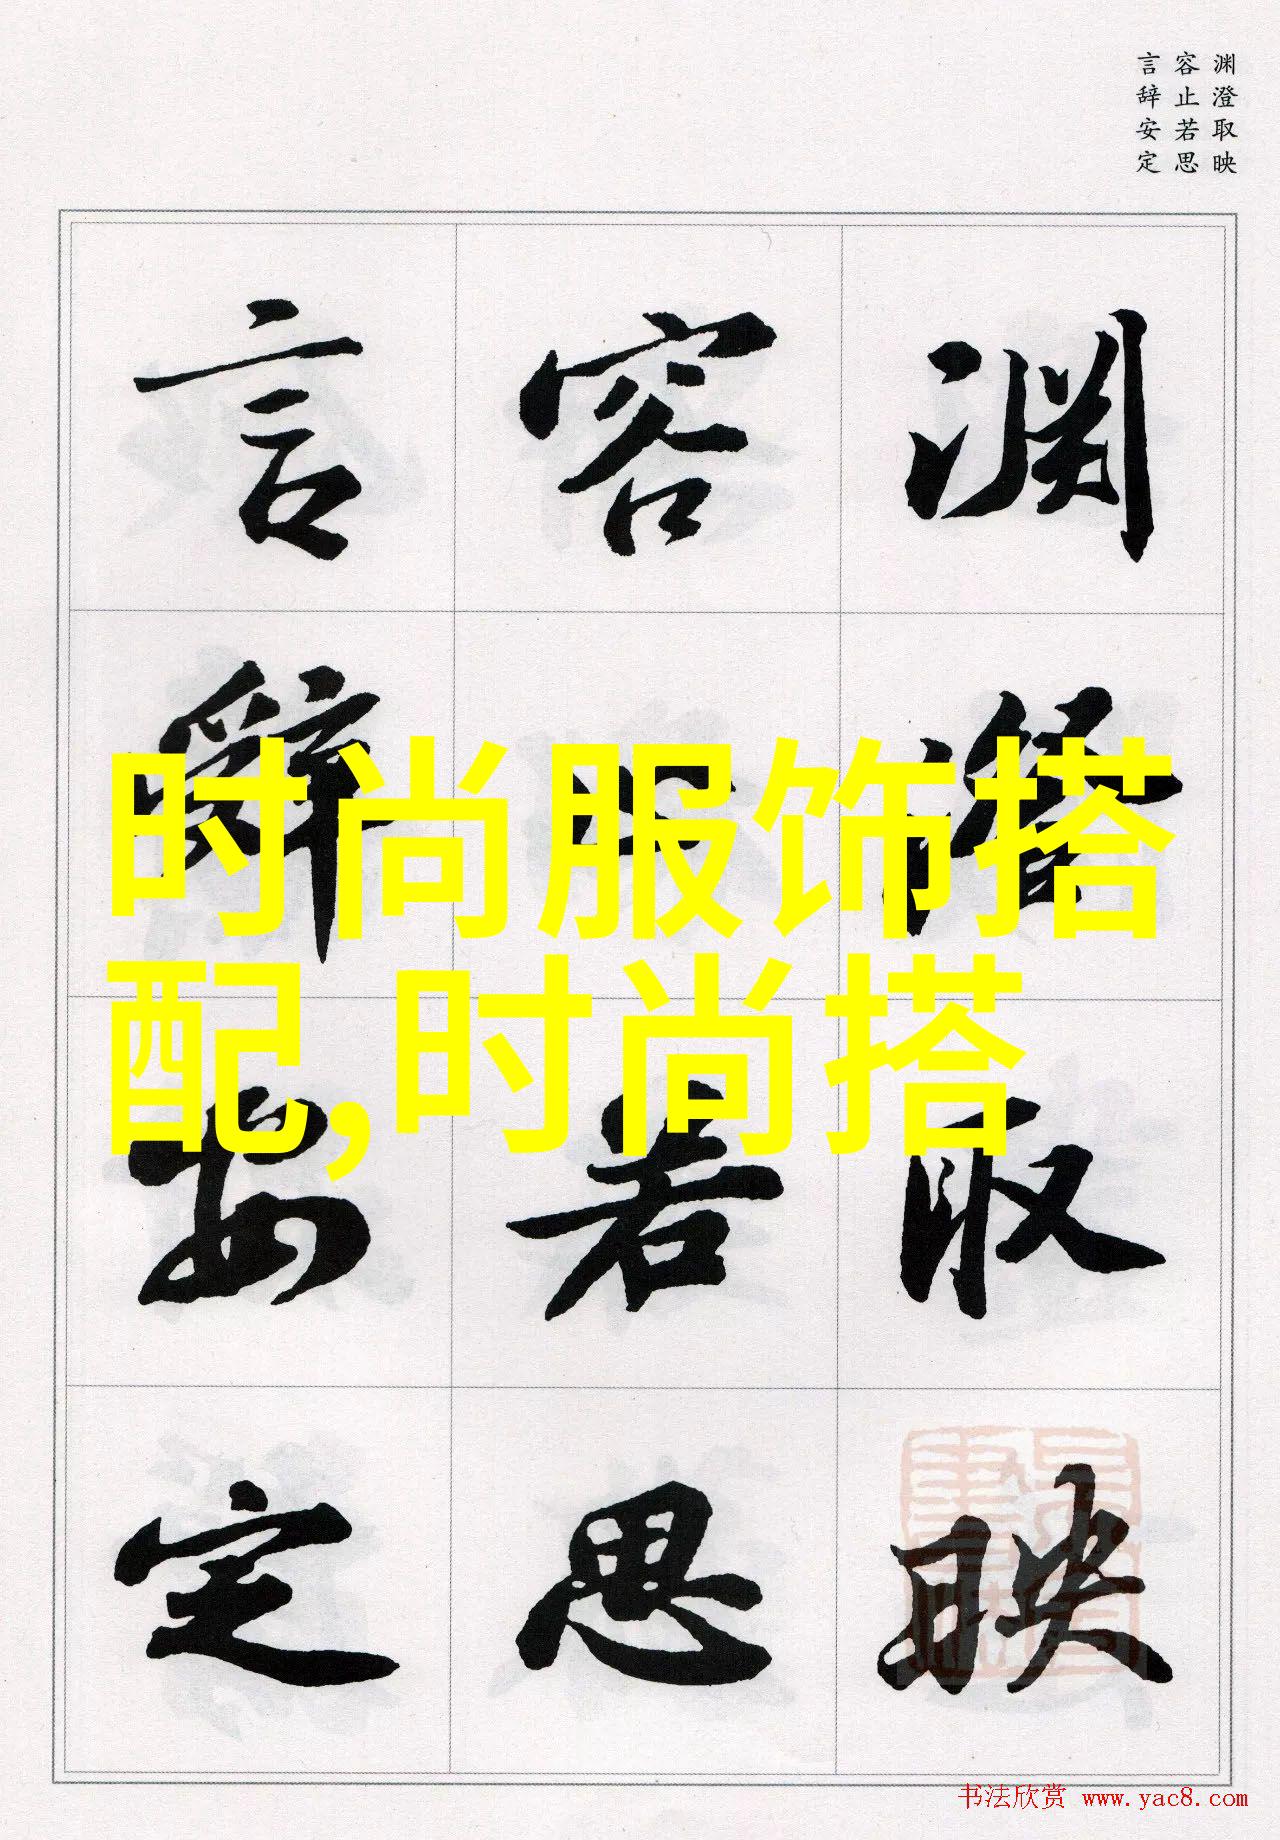 渊澄取映
容止若思
言辞安定
渊澄取映
容止若思
言辞安定
时尚服饰搭
配,时尚搭
书法欣赏 www.yac8.com